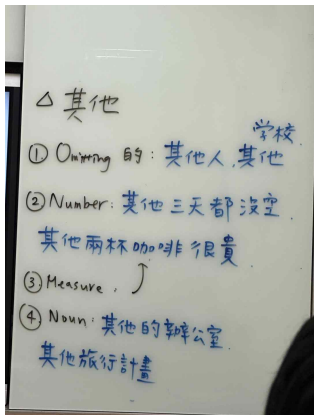 △ 其他
學校.
① Omitting 的: 其他人, 其他
② Number: 其他三天都沒空.
其他兩杯咖啡很貴
③ Measure.
④ Noun: 其他的辦公室.
其他旅行計畫